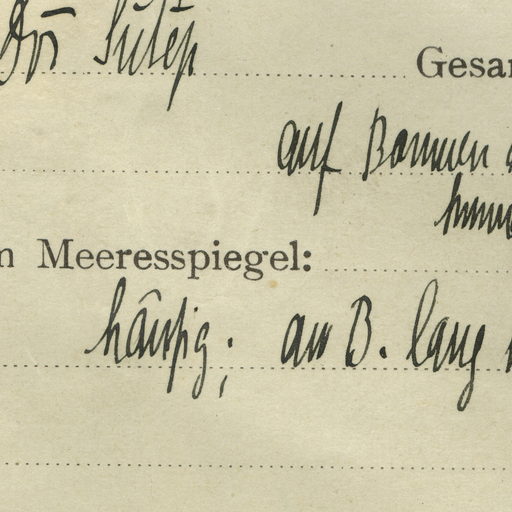 Dōi Sutēp
Gesam
auf Bäumen
m Meeresspiegel:
häufig; am B. lang